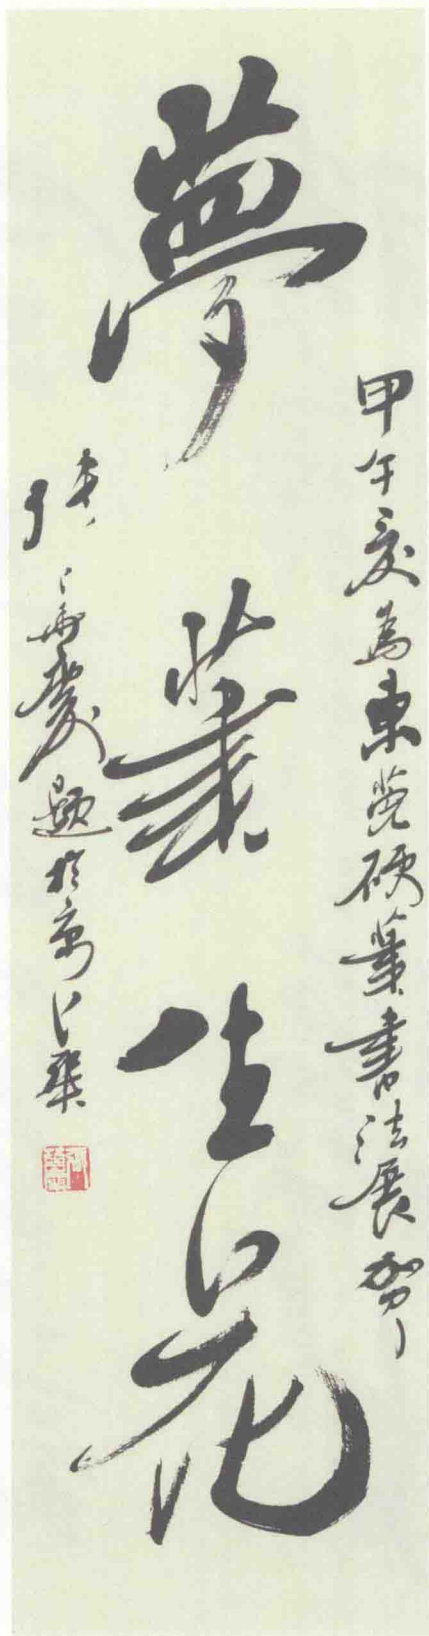 甲午夏為東莞硬筆書法展賀
夢筆生花
張華慶題於京